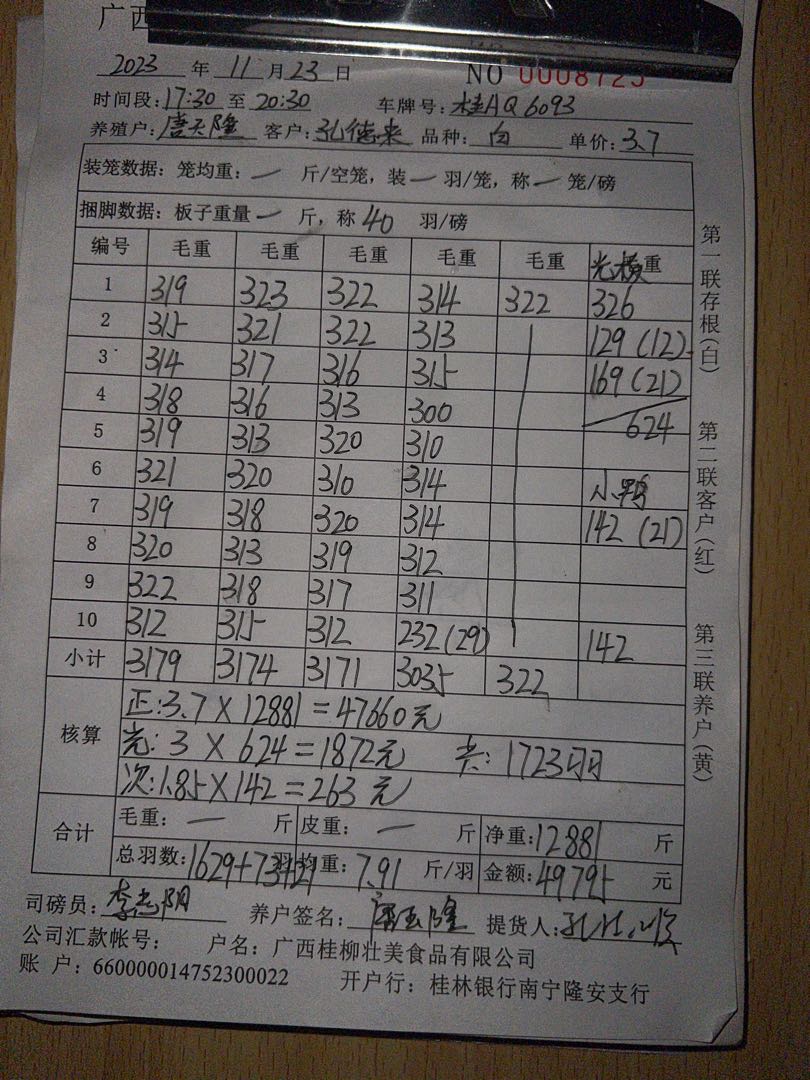 广西
2023 年 11 月 23 日 NO 0008725
时间段:17:30 至 20:30 车牌号:桂AQ6093
养殖户: 客户:孔德来 品种:白 单价:3.7
装笼数据:笼均重:一 斤/空笼,装一羽/笼,称一笼/磅
捆脚数据:板子重量一 斤,称40 羽/磅
编号 毛重 毛重 毛重 毛重 毛重 重
1 319 323 322 314 322 326
2 315 321 322 313 129(12)
3 314 317 316 315 169(21)
4 318 316 313 300 624
5 319 313 320 310
6 321 320 310 314 小鸭
7 319 318 320 314 142(21)
8 320 313 319 312
9 322 318 317 311
10 312 315 312 232(29) 142
小计 3179 3174 3171 3035 322
核算
正:3.7×12881=47660元
光:3×624=1872元 共:1723羽
次:1.85×142=263元
合计 毛重:一 斤 皮重:一 斤 净重:12881 斤
总羽数:1629+73+21 羽 均重:7.91 斤/羽 金额:49795 元
司磅员:李志阳 养户签名: 提货人:
公司汇款帐号: 户名:广西桂柳壮美食品有限公司
账 户:660000014752300022 开户行:桂林银行南宁隆安支行
第一联存根(白) 第二联客户(红) 第三联养户(黄)